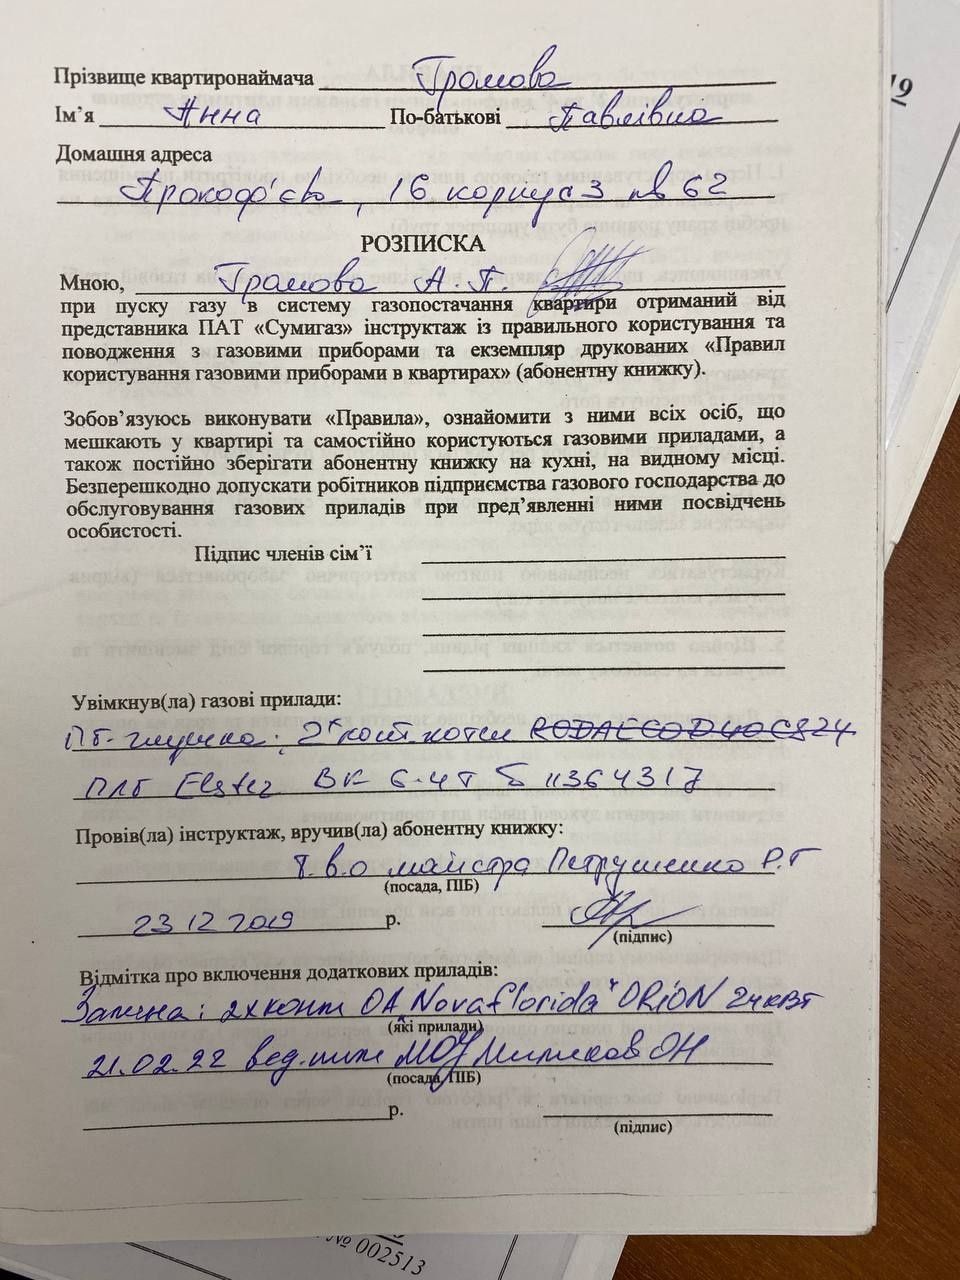 19
Прізвище квартиронаймача Грамова
Ім'я Анна По-батькові Павлівна
Домашня адреса
Прокоф'єва, 16 корпус 3 кв 62
РОЗПИСКА
Мною, Грамова А. П.
при пуску газу в систему газопостачання квартири отриманий від
представника ПАТ «Сумигаз» інструктаж із правильного користування та
поводження з газовими приборами та екземпляр друкованих «Правил
користування газовими приборами в квартирах» (абонентну книжку).
Зобов'язуюсь виконувати «Правила», ознайомити з ними всіх осіб, що
мешкають у квартирі та самостійно користуються газовими приладами, а
також постійно зберігати абонентну книжку на кухні, на видному місці.
Безперешкодно допускати робітників підприємства газового господарства до
обслуговування газових приладів при пред'явленні ними посвідчень
особистості.
Підпис членів сім'ї
Увімкнув(ла) газові прилади:
ПГ-глушка; 2х конт. котел
ПЛГ Elster ВК G-4T № 11364317
Провів(ла) інструктаж, вручив(ла) абонентну книжку:
Т.в.о майстра Петрушенко Р.Г
(посада, ПІБ)
23 12 2019 р.
(підпис)
Відмітка про включення додаткових приладів:
Заміна: 2х конт ОА Nova florida "ORiON 24 кВт
(які прилади)
21.02.22 вед.інж
(посада, ПІБ)
р.
(підпис)
№ 002513